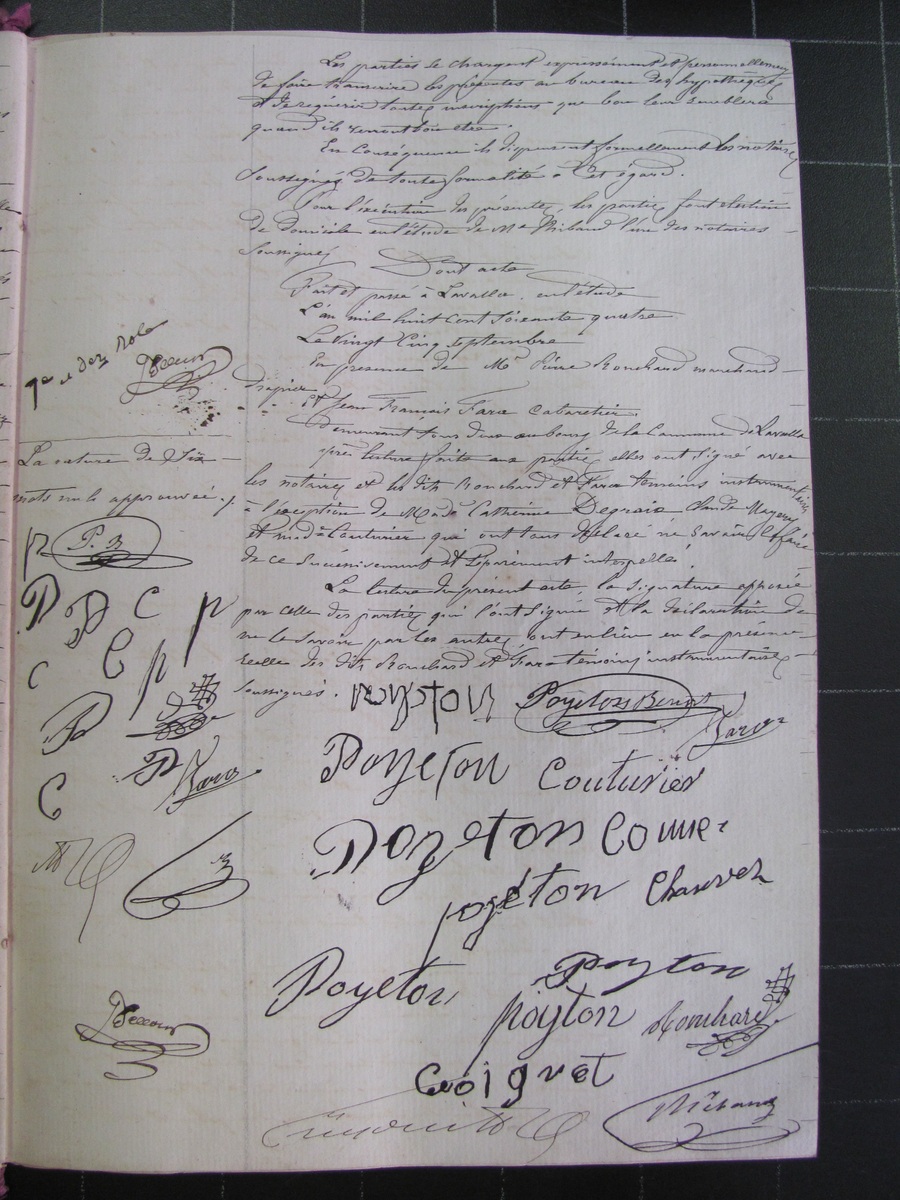 Les parties se chargent expressément et personnellement
de faire transcrire les présentes au bureau des hypothèques
et de requérir toutes inscriptions que bon leur semblera
quand ils verront bon être.
En conséquence ils dispensent formellement les notaires
soussignés de toute formalité à cet égard.
Pour l'exécution des présentes, les parties font élection
de domicile en l'étude de Me Thibaud l'un des notaires
soussignés
Dont acte
Fait et passé à Lavalla. en l'étude
L'an mil huit cent soixante quatre
Le vingt cinq septembre
En présence de Mr Pierre Ronchard marchand
drapier
et Jean François Fara cabaretier.
demeurant tous deux au bourg de la Commune de Lavalla
après lecture faite aux parties, elles ont signé avec
les notaires et les dits Ronchard et Fara témoins instrumentaires
à l'exception de Made Catherine Degraix
et made Couturier qui ont tous déclaré ne savoir le faire
de ce successivement et séparément interpellé.
La lecture du présent acte, la signature apposée
par celle des parties qui l'ont signé et la déclaration de
ne le savoir par les autres ont eu lieu en la présence
réelle des dits Ronchard et Fara témoins instrumentaires
soussignés.
La rature de dix
mots nuls approuvée ./.
P. B
P
D D C P
C C P P
P
P Fara
C
Poyeton Benoit
Fara
Poyeton Couturier
Poyeton Come
poyéton Charvet
Poyeton
Poyton
poyton Ronchard
Coignet
Thibaud